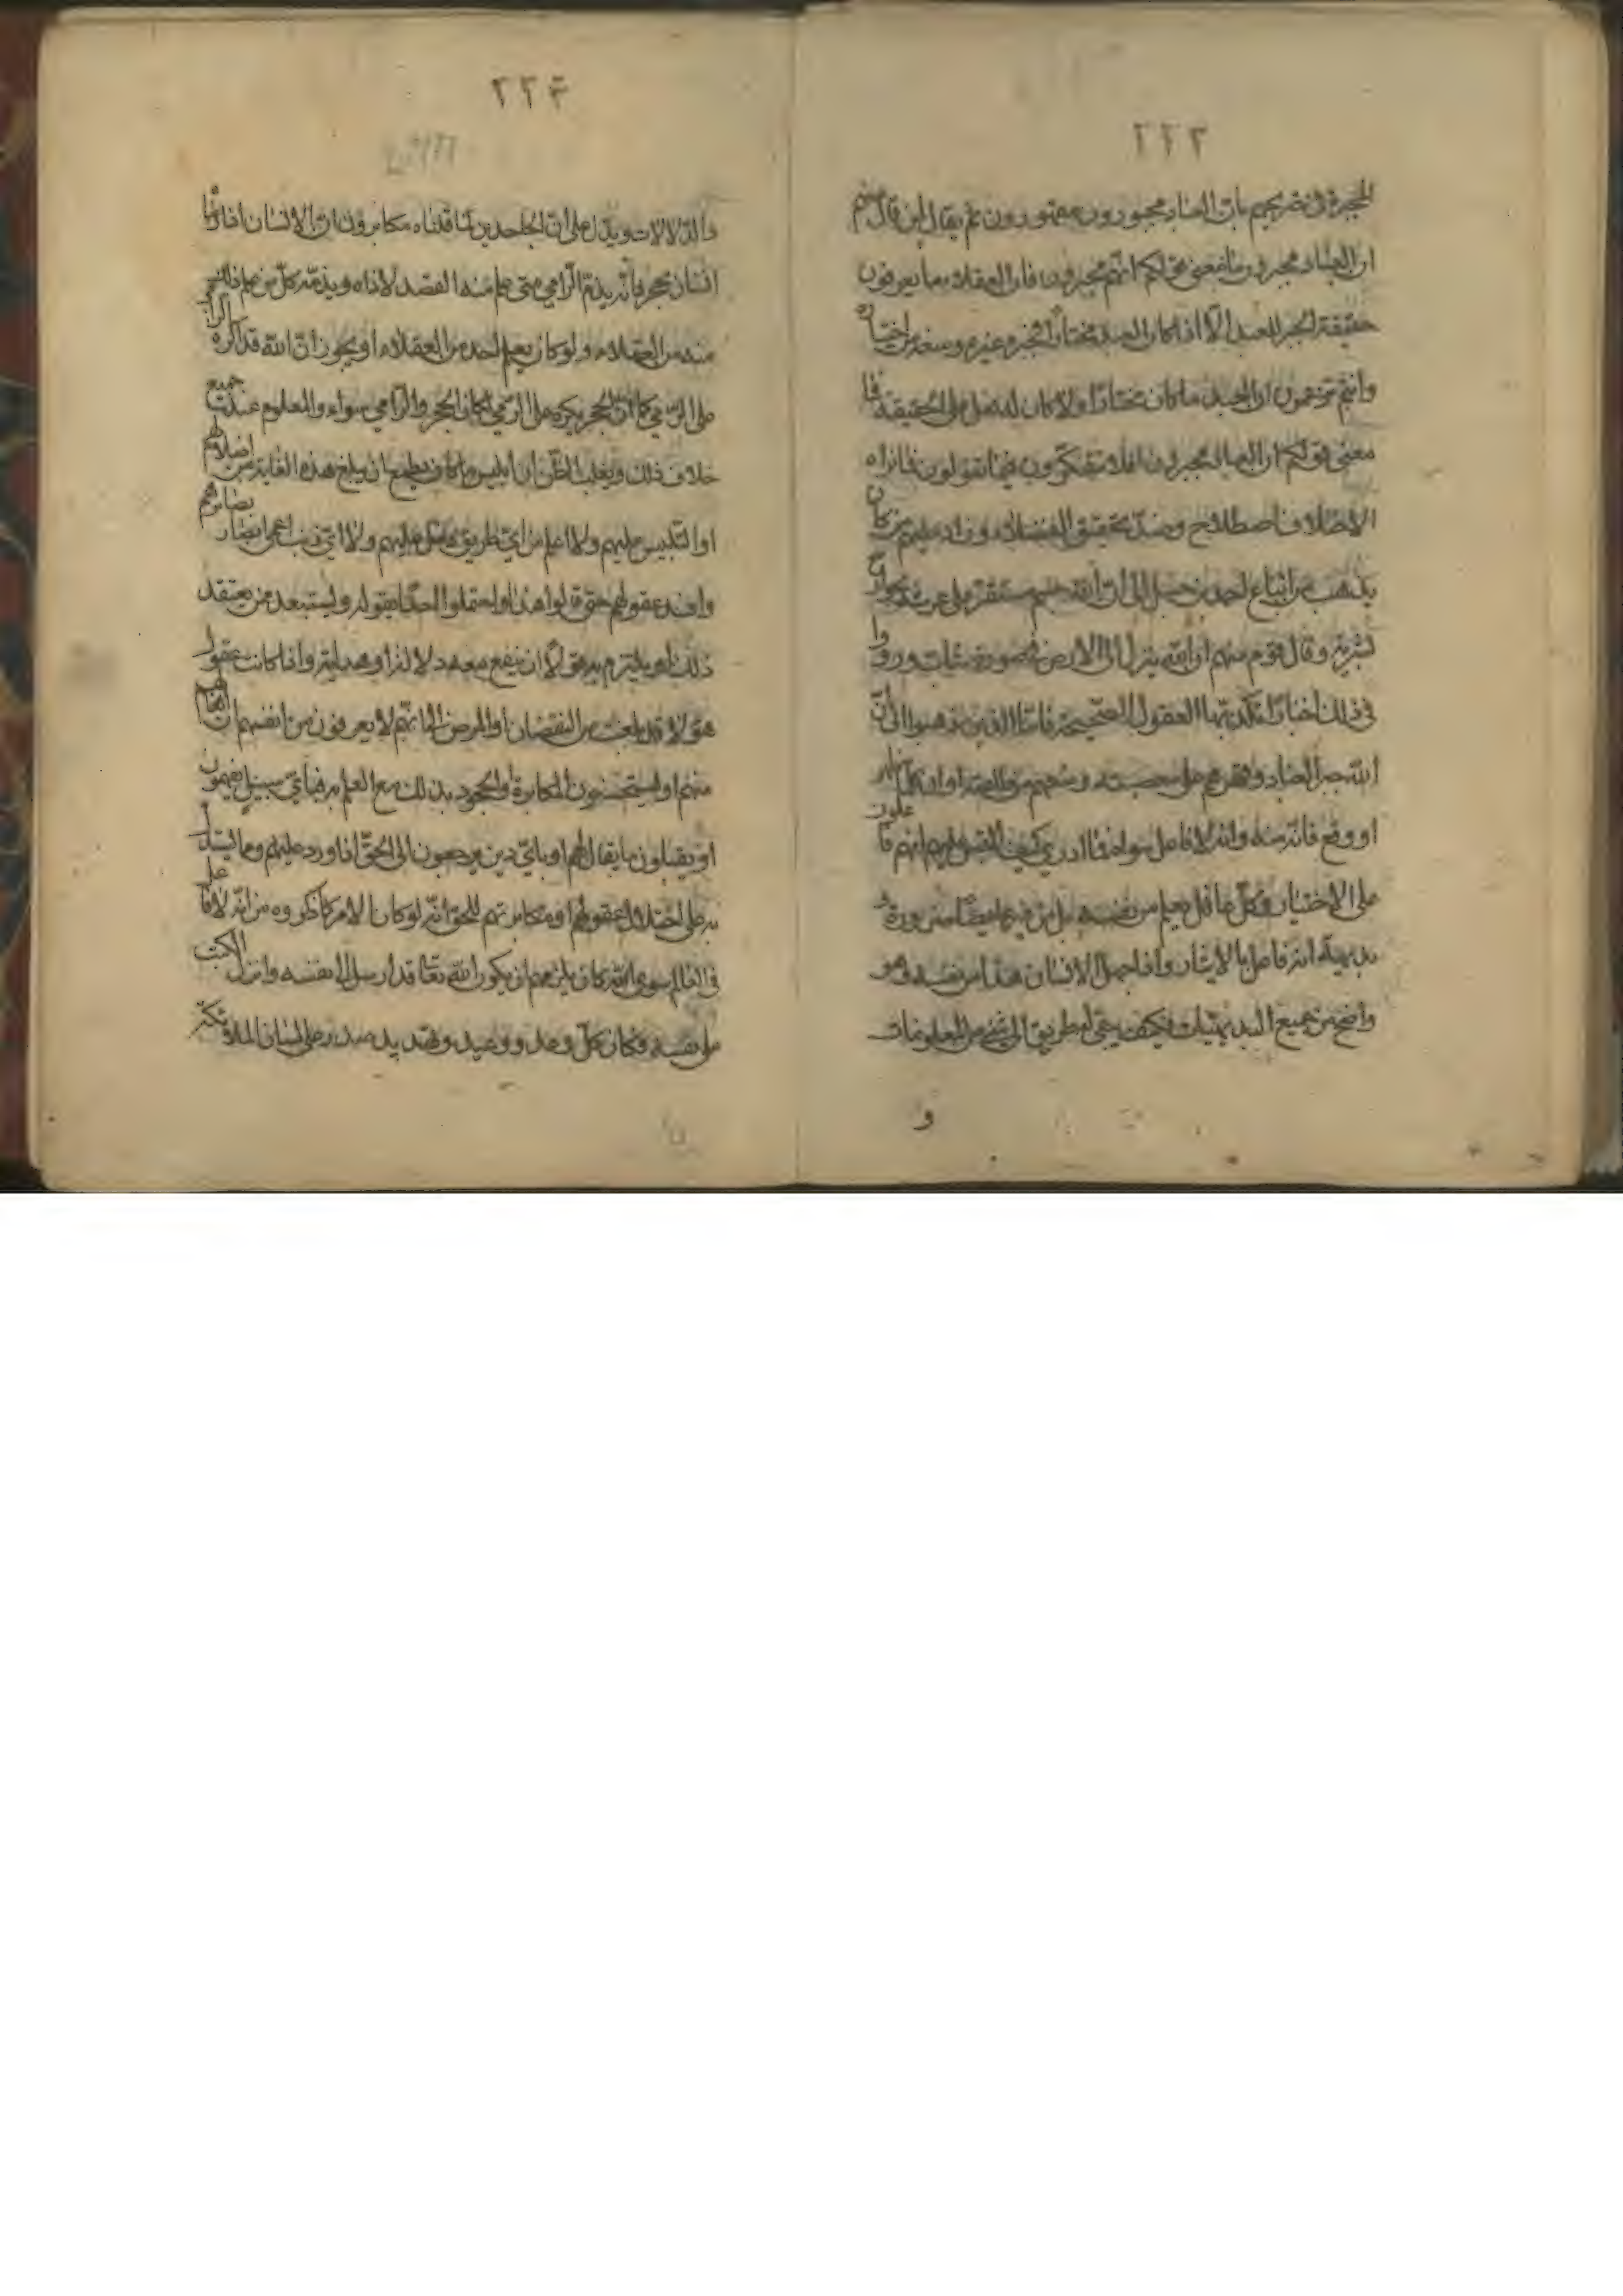 ٢٢٣
المجبرة في تصريحهم بان العباد مجبورون مقهورون ثم يقال لمن قال منهم
ان العباد مجبرون ما معنى قولكم انهم مجبرون فان العقلاء ما يعرفون
حقيقة الجبر للعبد الا اذا كان العبد مختارا فجبره غيره ومنعه من اختياره
وانتم تزعمون ان العبد ما كان مختارا ولا كان له فعل على الحقيقة فا
معنى قولكم ان العباد مجبرون افلا تتفكرون فيما تقولون فانراه
الا خلاف اصطلاح وضد تحقيق الفضلاء وزاد عليهم من كان
يذهب من اتباع احمد بن حنبل الى ان الله جسم مستقر على عرشه بجوارح
بشرية وقال قوم منهم ان الله ينزل الى الارض في صورة شاب ورووا
في ذلك اخبارا تكذبها العقول الصحيحة فاما الذين ذهبوا الى ان
الله جبر العباد وقهرهم على معصيته ومنعهم من طاعته او ان كل
او وقع فانه منه وانه لا فاعل سواه فما ادري كيف التبس عليهم انهم فاعلون
على الاختيار وكل عاقل يعلم من نفسه بل من غيره ايضا ضرورة
بديهية انه فاعل بالايثار واذا جهل الانسان هذا من نفسه وهو
واضح من جميع البديهيات فكيف يبقى له طريق الى شيء من المعلومات
و
٢٢٤
والدلالات ويدل على ان الجاحدين لما قلناه مكابرون ان الانسان اذا رمى
انسان بحجر فانه يذم الرامي متى علم منه القصد لاذاه ويذمه كل من علم ذلك
منه من العقلاء ولو كان يعلم احد من العقلاء او يجوز ان الله قد اكره الرامي
على الرمي كما ان الحجر مكره على الرمي لكان الحجر والرامي سواء والمعلوم عند جميع
خلاف ذلك ويغلب الظن ان ابليس ما كان يطمع ان يبلغ هذه الغاية من اضلالهم
او التلبيس عليهم ولا اعلم من اي طريق دخل عليهم ولا اي ذنب اعمى بصائرهم
وافسد عقولهم حتى قالوا هذا واحتملوا احدا يقوله وليستبعد ممن يعتقد
ذلك او يلتزم به حق لا ان ينفع معه دلالة او هداية واذا كانت عقول
هؤلاء قد بلغت من النقصان او المرض الى انهم لا يعرفون من انفسهم ان افعالهم
منهم او يستحسنون المكابرة والجحود بذلك مع العلم به فباي سبيل يفهمون
او يقبلون ما يقال لهم او باي دين يرجعون الى الحق اذا ورد عليهم ومما يستدل
به على اختلال عقولهم او مكابرتهم للحق انه لو كان الامر كما ذكروه من انه لا فاعل
في العالم سوى الله كان يلزمهم ان يكون الله تعا قد ارسل الى نفسه وانزل الكتب
على نفسه وكان كل وعد ووعيد وتهديد صدر على لسان الملائكة